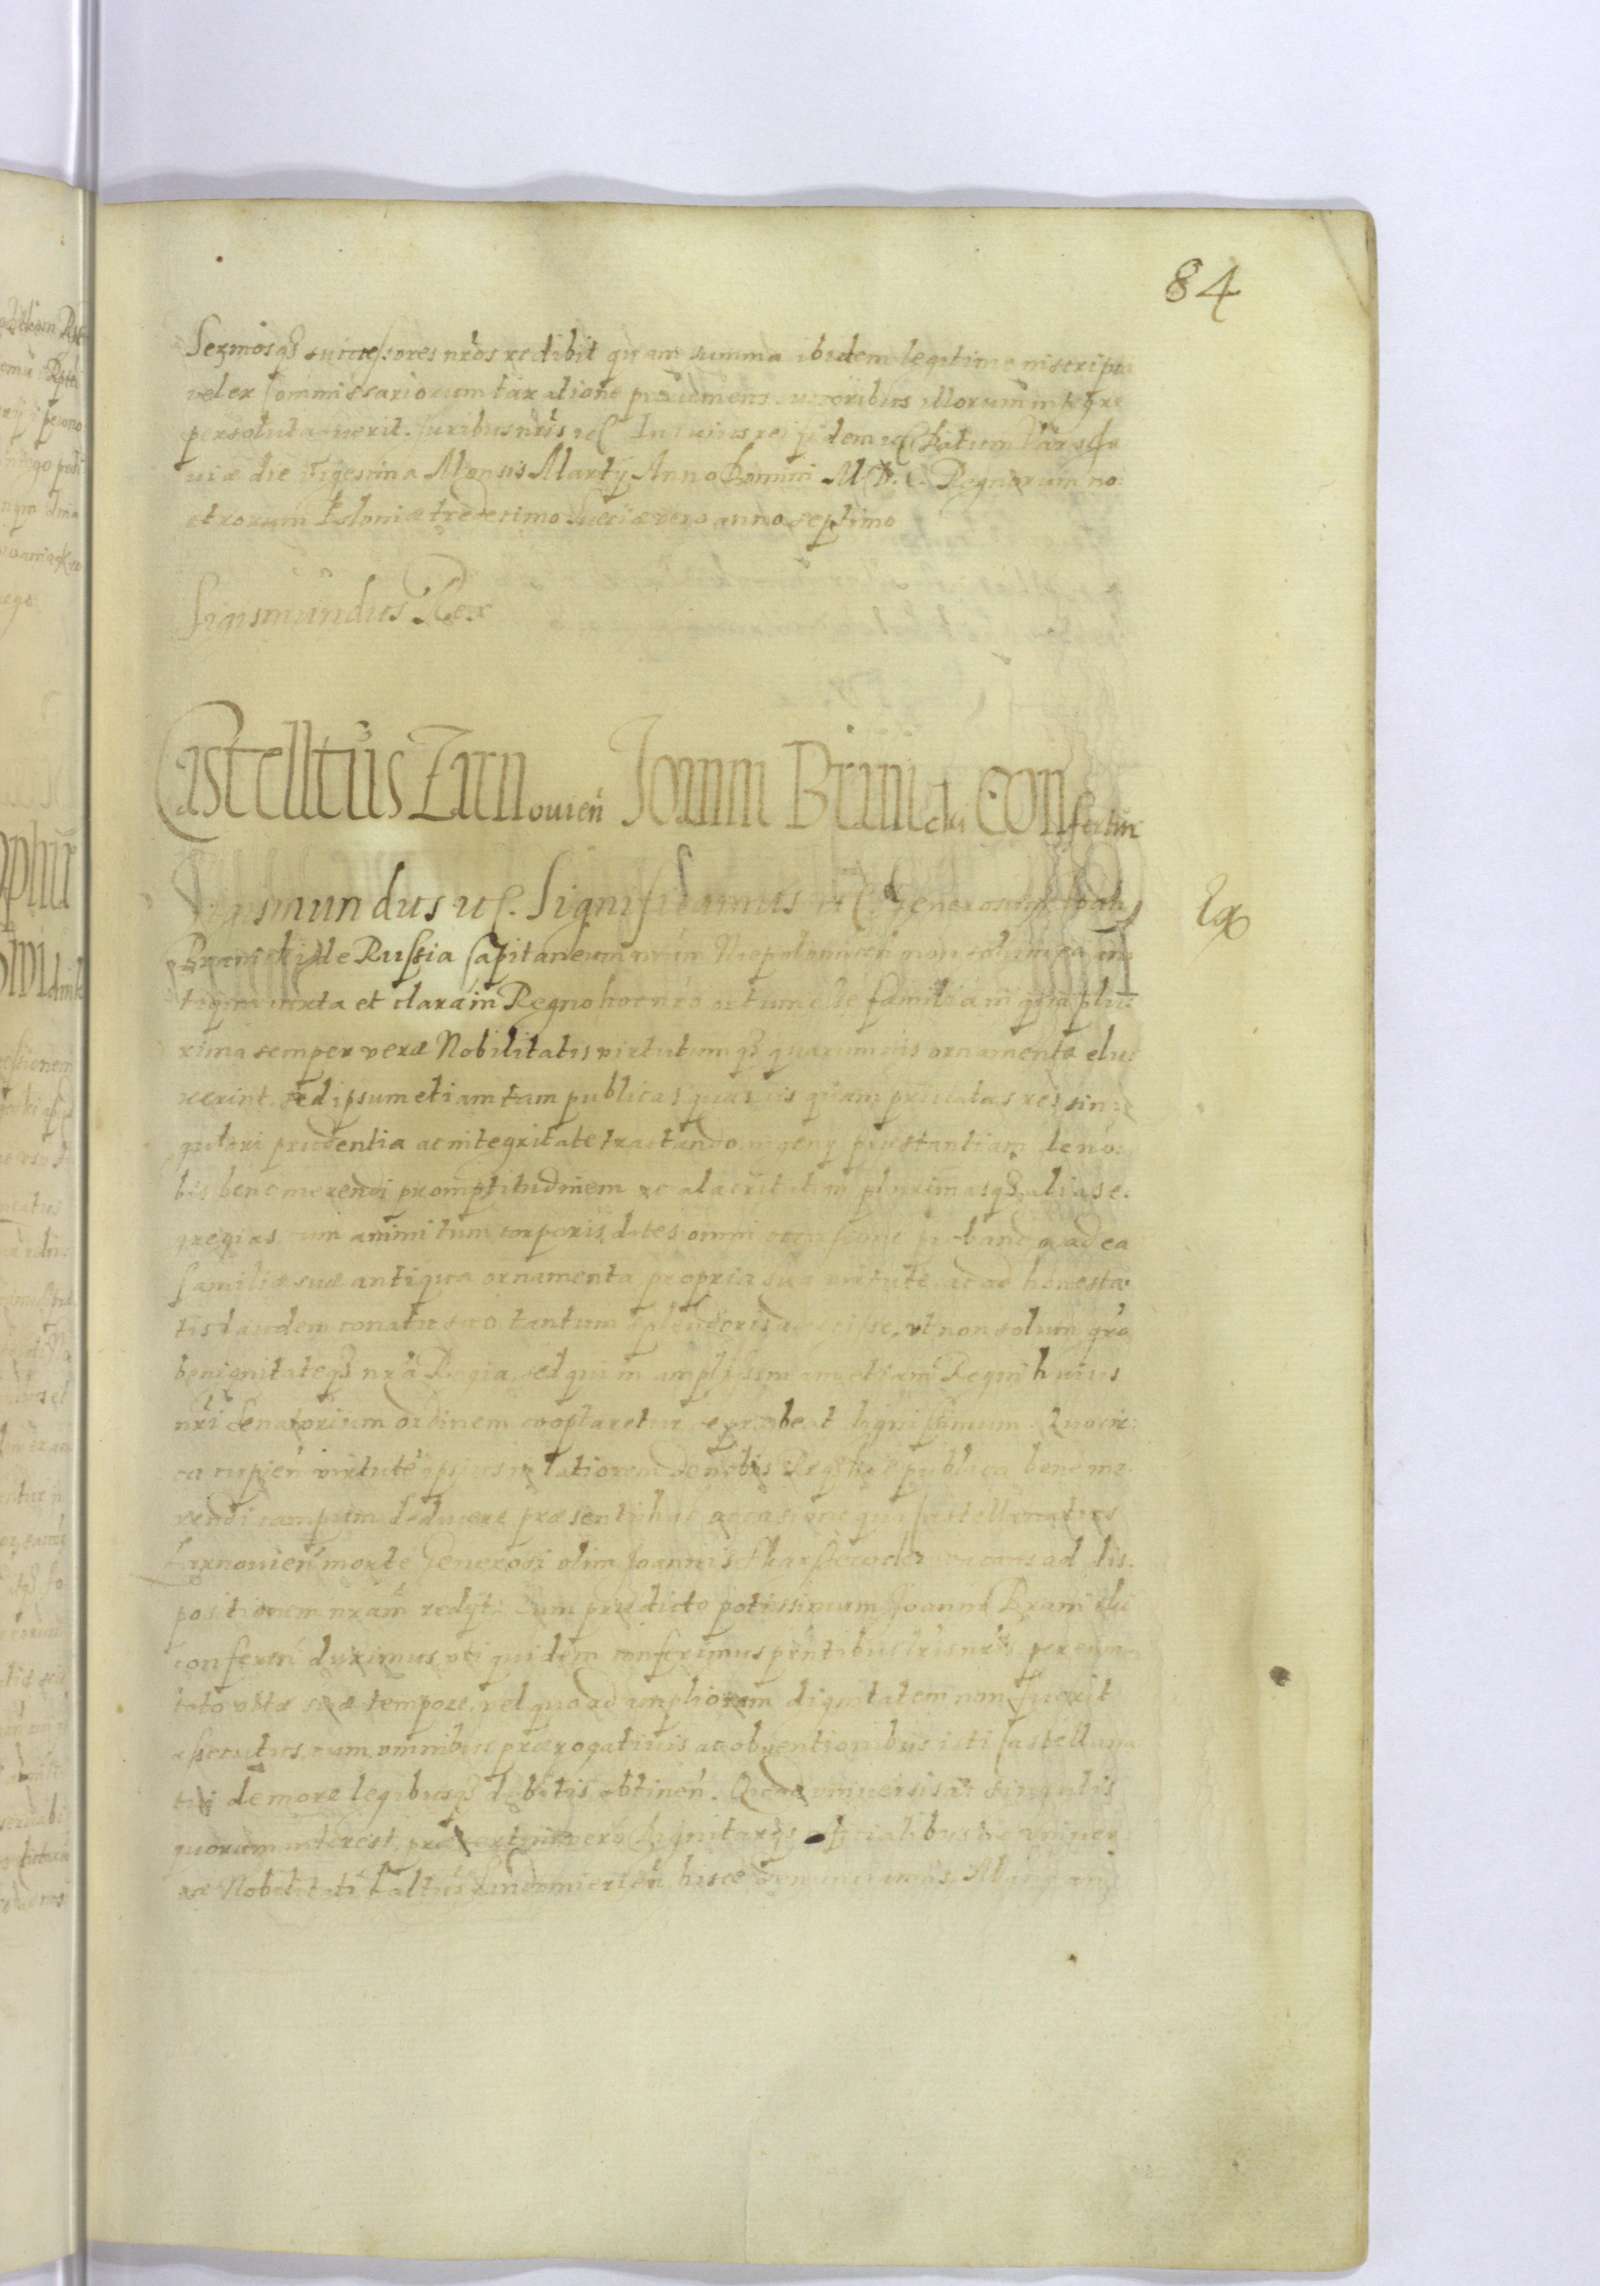 84
Sermosq3 successores nros redibit quam summa ibidem legitime inscripta
vel ex Commissariorum taxatione proveniens uxoribus illorum integre
persoluta fuerit. Iuribus nris etc. In cuius rei fidem etc. Datum Varsa
viæ die Vigesima Mensis Martÿ Anno Domini M.D.C. Regnorum no:
strorum Poloniæ tredecimo Sueciæ vero anno septimo
Sigismundus Rex
Castelltus Zarnovień Joanni Branicki Confertur
Sigismundus etc. Significamus etc. Generosum Joań
Branicki de Russia Capitaneum nrm Niepolomiceń non solum ea an
tiqua iuxta et clara in Regno hoc nro ortum esse familia in qua plu:
rima semper veræ Nobilitatis virtutumq3 quarumvis ornamenta elu:
xerint. Sed ipsum etiam tam publicas quasvis quam privatas res sin:
gulari prudentia ac integritate tractando ingenÿ præstantiam de no:
bis bene merendi promptitudinem ac alacritatem plurimasq3 alias e:
gregias cum animi tum corporis dotes omni occasione probando ad ea
familiæ suæ antiqua ornamenta propria sua virtute ac ad honesta:
tis laudem conatu suo tantum splendoris adiecisse, ut non solum gra
benignitateq3 nra Regia, sed qui in amplissimum etiam Regni huius
nri Senatorium ordinem cooptaretur se præbeat dignissimum. Quocir:
ca cupień virtuti ipsius latiorem de nobis Req3 hac publica bene me:
rendi campum deducere præsenti hac occasione qua Castellanatus
Zarnovień morte Generosi olim Joannis vacans ad dis:
positionem nram redÿt. Eum prædicto potissimum Joanni Branicki
confereń duximus uti quidem conferimus pntibus lris nris per eum
toto vitæ suæ tempore, vel quoad ampliorem dignitatem non fuerit
assecutus, cum omnibus prærogativis ac obventionibus isti Castellana
tui de more legibusq3 debitis obtineń. Quod universis et singulis
quorum interest, præsertim vero Dignitarÿs officialibus ac univer
sæ Nobilitati Paltus Sandomirień hisce denunciamus. Mang an